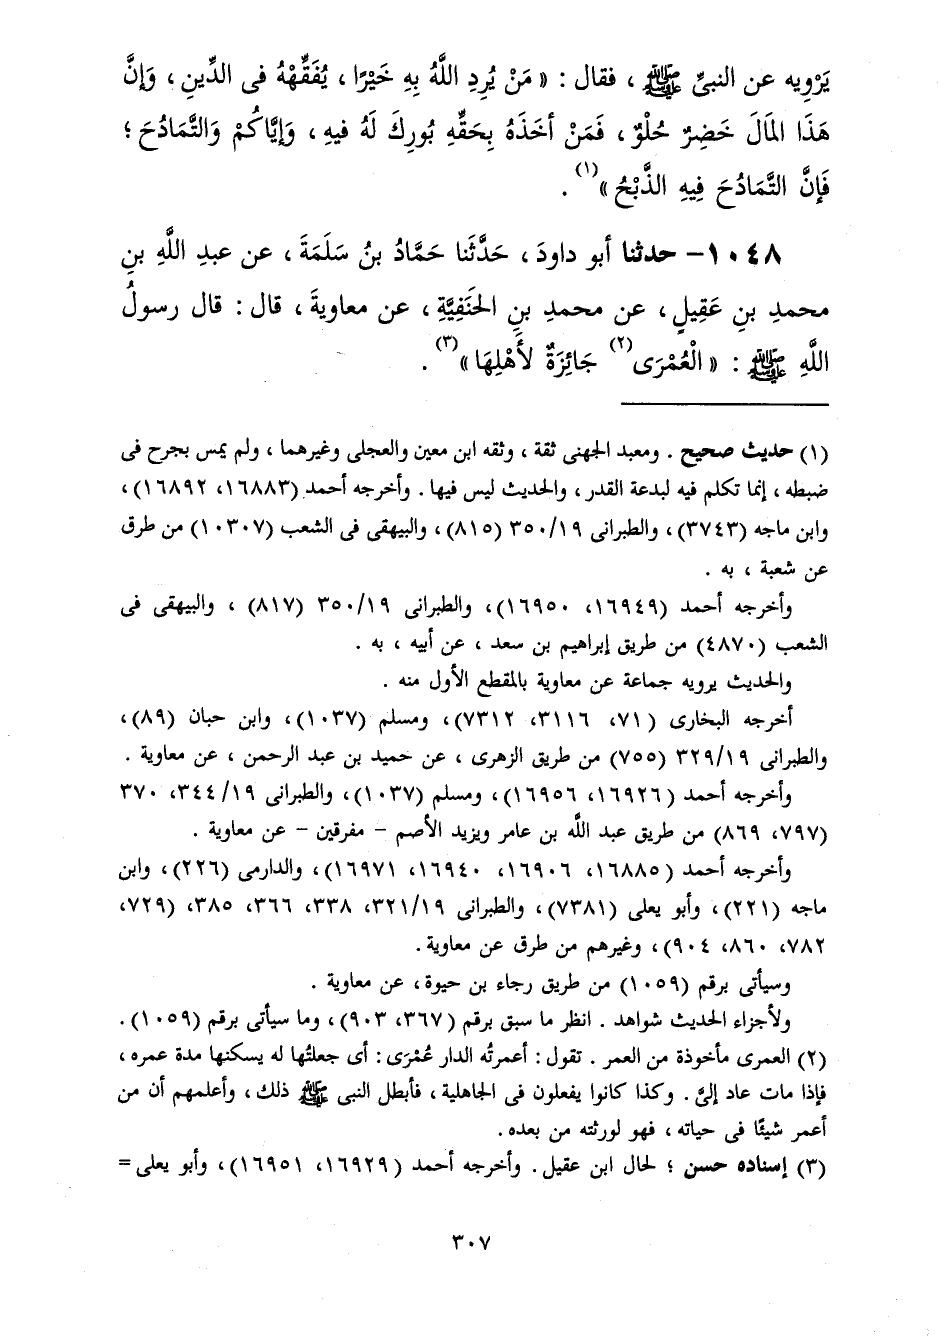 يَرْوِيه عن النبىِّ ﷺ ، فقال : « مَنْ يُرِدِ اللَّهُ بِهِ خَيْرًا ، يُفَقِّهْهُ فى الدِّينِ ، وَإِنَّ
هَذَا المَالَ خَضِرٌ حُلْوٌ ، فَمَنْ أخَذَهُ بِحَقِّهِ بُورِكَ لَهُ فيهِ ، وَإِيَّاكُمْ وَالتَّمَادُحَ ؛
فَإِنَّ التَّمَادُحَ فِيهِ الذَّبْحُ »(١) .
١٠٤٨- حدثنا أبو داودَ ، حَدَّثَنا حَمَّادُ بنُ سَلَمَةَ ، عن عبدِ اللَّهِ بنِ
محمدِ بنِ عَقِيلٍ ، عن محمدِ بنِ الحَنَفِيَّةِ ، عن معاويةَ ، قال : قال رسولُ
اللَّهِ ﷺ : « الْعُمْرَى(٢) جَائِزَةٌ لأَهْلِهَا »(٣) .
(١) حديث صحيح . ومعبد الجهنى ثقة ، وثقه ابن معين والعجلى وغيرهما ، ولم يمس بجرح فى
ضبطه ، إنما تكلم فيه لبدعة القدر ، والحديث ليس فيها . وأخرجه أحمد (١٦٨٨٣، ١٦٨٩٢) ،
وابن ماجه (٣٧٤٣) ، والطبرانى ٣٥٠/١٩ (٨١٥) ، والبيهقى فى الشعب (١٠٣٠٧) من طرق
عن شعبة ، به .
وأخرجه أحمد (١٦٩٤٩، ١٦٩٥٠)، والطبرانى ٣٥٠/١٩ (٨١٧) ، والبيهقى فى
الشعب (٤٨٧٠) من طريق إبراهيم بن سعد ، عن أبيه ، به .
والحديث يرويه جماعة عن معاوية بالمقطع الأول منه .
أخرجه البخارى (٧١، ٣١١٦، ٧٣١٢)، ومسلم (١٠٣٧)، وابن حبان (٨٩)،
والطبرانى ٣٢٩/١٩ (٧٥٥) من طريق الزهرى ، عن حميد بن عبد الرحمن ، عن معاوية .
وأخرجه أحمد (١٦٩٢٦، ١٦٩٥٦)، ومسلم (١٠٣٧)، والطبرانى ٣٤٤/١٩، ٣٧٠
(٧٩٧، ٨٦٩) من طريق عبد اللَّه بن عامر ويزيد الأصم - مفرقين - عن معاوية .
وأخرجه أحمد (١٦٨٨٥، ١٦٩٠٦، ١٦٩٤٠، ١٦٩٧١)، والدارمى (٢٢٦)، وابن
ماجه (٢٢١)، وأبو يعلى (٧٣٨١)، والطبرانى ٣٢١/١٩، ٣٣٨، ٣٦٦، ٣٨٥، (٧٢٩،
٧٨٢، ٨٦٠، ٩٠٤)، وغيرهم من طرق عن معاوية .
وسيأتى برقم (١٠٥٩) من طريق رجاء بن حيوة، عن معاوية .
ولأجزاء الحديث شواهد . انظر ما سبق برقم (٣٦٧، ٩٠٣)، وما سيأتى برقم (١٠٥٩).
(٢) العمرى مأخوذة من العمر . تقول : أعمرتُه الدار عُمْرَى : أى جعلتُها له يسكنها مدة عمره ،
فإذا مات عاد إلىَّ . وكذا كانوا يفعلون فى الجاهلية ، فأبطل النبى ﷺ ذلك ، وأعلمهم أن من
أعمر شيئًا فى حياته ، فهو لورثته من بعده.
(٣) إسناده حسن ؛ لحال ابن عقيل . وأخرجه أحمد (١٦٩٢٩، ١٦٩٥١)، وأبو يعلى =
٣٠٧